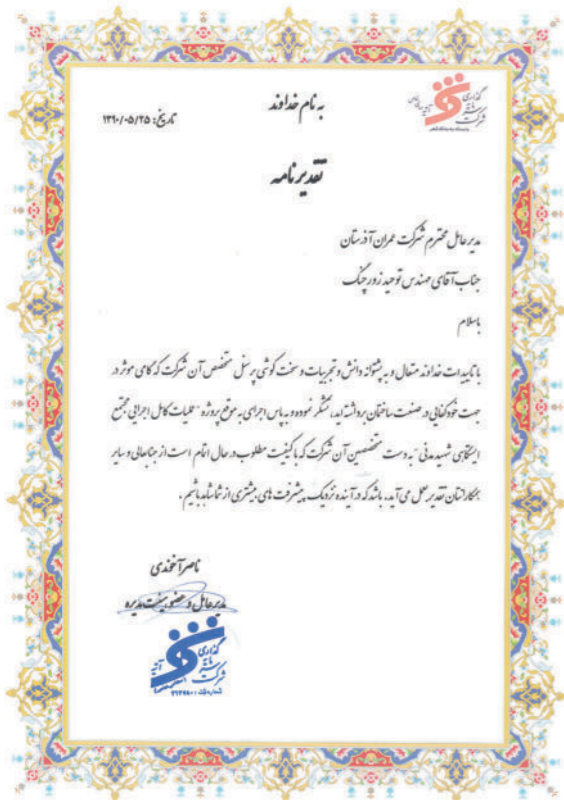 گذاری
مایه
شرکت
به نام خداوند
تاریخ: ۱۳۹۰/۰۵/۲۵
تقدیرنامه
مدیر عامل محترم شرکت عمران آذرستان
جناب آقای مهندس توحید زورچنگ
باسلام
با تاییدات خداوند متعال و به پشتوانه دانش و تجربیات و سخت کوشی پرسنل متخصص آن شرکت که گامی موثر در
جهت خودکفایی در صنعت ساختمان برداشته اید، متشکر نموده و به پاس اجرای به موقع پروژه "عملیات کامل اجرایی مجتمع
ایستگاهی شهید مدنی" به دست متخصصین آن شرکت که با کیفیت مطلوب در حال اتمام است از جنابعالی و سایر
همکارانتان تقدیر بعمل می آید. باشد که در آینده نزدیک پیشرفت های بیشتری از شما شاهد باشیم.
ناصر آخوندی
مدیر عامل و عضو هیئت مدیره
گذاری
مایه
شرکت
شماره ثبت: